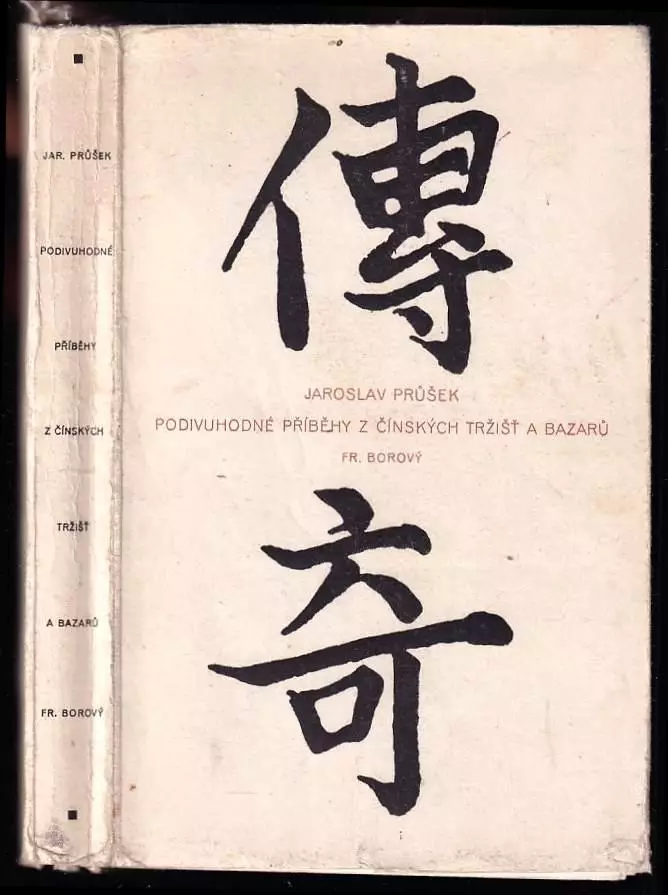 JAR. PRŮŠEK
PODIVUHODNÉ
PŘÍBĚHY
Z ČÍNSKÝCH
TRŽIŠŤ
A BAZARŮ
FR. BOROVÝ
傳
JAROSLAV PRŮŠEK
PODIVUHODNÉ PŘÍBĚHY Z ČÍNSKÝCH TRŽIŠŤ A BAZARŮ
FR. BOROVÝ
奇